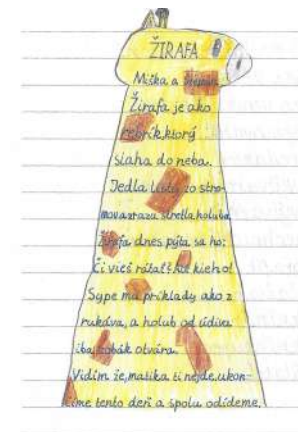 ŽIRAFA
Miška a Štepán
Žirafa je ako
rebrík,ktorý
siaha do neba.
Jedla listy zo stro-
mov a zrazu stretla holuba.
Žirafa dnes pýta sa ho:
Či vieš rátať?
Sype mu príklady ako z
rukáva, a holub od údivu
iba zobák otvára.
Vidím že, matika ti nejde, ukon-
čime tento deň a spolu odídeme.